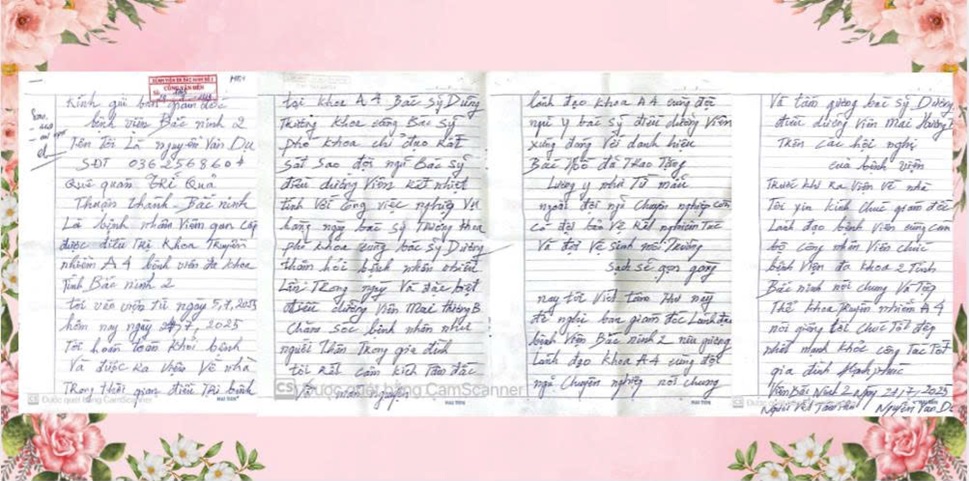 BỆNH VIỆN ĐK BẮC NINH SỐ 2
CÔNG VĂN ĐẾN
Kính gửi ban giám đốc
bệnh viện Bắc ninh 2
Tên Tôi Là nguyễn Văn Dụ
SĐT 036256860
Quê quán Trí Quả
Thuận thành - Bắc ninh
Là bệnh nhân Viêm gan cấp
được điều Trị Khoa Truyền
nhiễm A4 bệnh viện đa khoa
Tỉnh Bắc ninh 2
tôi vào viện Từ ngày 5,7,2025
hôm nay ngày 21,7,2025
Tôi hoàn toàn khỏi bệnh
Và được Ra Viện Về nhà
Trong Thời gian điều Trị bệnh
Được quét bằng CamScanner
tại khoa A4 Bác sỹ Dưỡng
Trưởng Khoa cùng Bác sỹ
phó Khoa chỉ đạo Rất
Sát Sao đội ngũ Bác sỹ
điều dưỡng Viên Rất nhiệt
tình Với công việc nghiệp Vụ
hàng ngày bác sỹ Trưởng khoa
phó khoa cùng bác sỹ Dưỡng
thăm hỏi bệnh nhân nhiều
Lần Trong ngày Và đặc biệt
điều dưỡng Viên Mai Hương B
chăm sóc bệnh nhân như
người Thân Trong gia đình
tôi Rất cảm kích
CS Được quét bằng CamScanner
lãnh đạo khoa A4 cùng đội
ngũ y bác sỹ điều dưỡng Viên
xứng đáng Với danh hiệu
Bác Hồ đã Trao Tặng
Lương y như Từ mẫu
ngoài đội ngũ chuyên nghiệp còn
có đội bảo Vệ Rất nghiêm Túc
Và đội Vệ Sinh môi Trường
Sạch sẽ gọn gàng
nay tôi Viết tâm thư này
đề nghị ban giám đốc Lãnh đạo
bệnh Viện Bắc ninh 2 nêu gương
Lãnh đạo khoa A4 cùng đội
ngũ chuyên nghiệp nói chung
Được quét bằng CamScanner
Và tấm gương bác sỹ Dưỡng
điều dưỡng Viên Mai Hương B
Trên các hội nghị
của bệnh viện
Trước khi Ra Viện Về nhà
Tôi xin kính chúc giám đốc
Lãnh đạo bệnh Viện cùng cán
bộ công nhân Viên chức
bệnh Viện đa khoa 2 Tỉnh
Bắc ninh nói chung Và Tập
Thể khoa Truyền nhiễm A4
nói riêng lời chúc Tốt đẹp
nhất mạnh khỏe công Tác Tốt
gia đình Hạnh phúc
Viện Bắc Ninh 2 Ngày 21/7/2025
Người Viết Tâm thư Nguyễn Văn Dụ